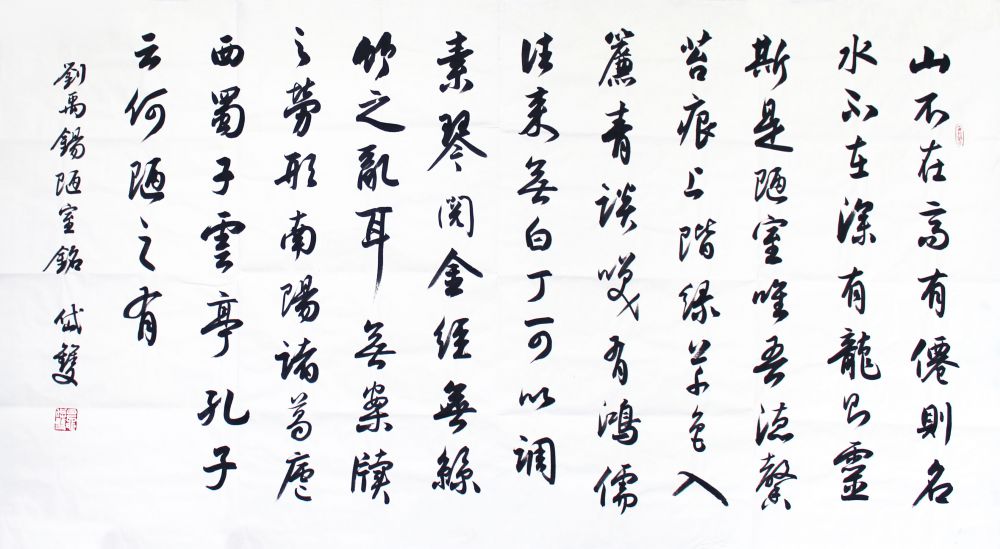 山不在高有僊則名
水不在深有龍则靈
斯是陋室唯吾德馨
苔痕上階緑草色入
簾青談笑有鴻儒
往来無白丁可以調
素琴閲金經無絲
竹之亂耳無案牘
之勞形南陽諸葛廬
西蜀子雲亭孔子
云何陋之有
劉禹錫陋室銘 岱雙